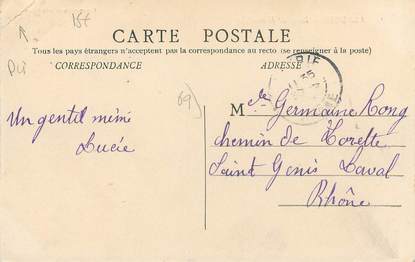 15f
CARTE POSTALE
Tous les pays étrangers n'acceptent pas la correspondance au recto (se renseigner à la poste)
CORRESPONDANCE
ADRESSE
69)
Un gentil mimi
Lucie
Mlle Germaine Rong
chemin de Torette
Saint Genis Laval
Rhône